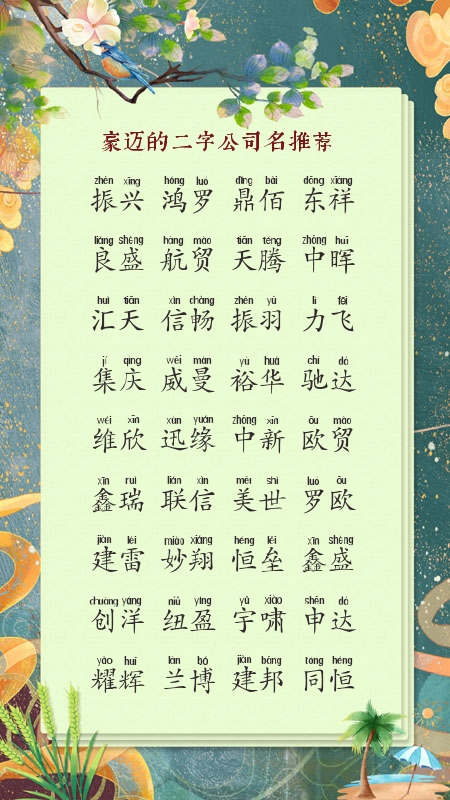 豪迈的二字公司名推荐
zhèn xīng hóng luó dǐng bǎi dōng xiáng
振兴 鸿罗 鼎佰 东祥
liáng shèng háng mào tiān téng zhōng huī
良盛 航贸 天腾 中晖
huì tiān xìn chàng zhèn yǔ lì fēi
汇天 信畅 振羽 力飞
jí qìng wēi màn yù huá chí dá
集庆 威曼 裕华 驰达
wéi xīn xùn yuán zhōng xīn ōu mào
维欣 迅缘 中新 欧贸
xīn ruì lián xìn měi shì luó ōu
鑫瑞 联信 美世 罗欧
jiàn léi miào xiáng héng lěi xīn shèng
建雷 妙翔 恒垒 鑫盛
chuàng yáng niǔ yíng yǔ xiào shēn dá
创洋 纽盈 宇啸 申达
yào huī lán bó jiàn bāng tóng héng
耀辉 兰博 建邦 同恒